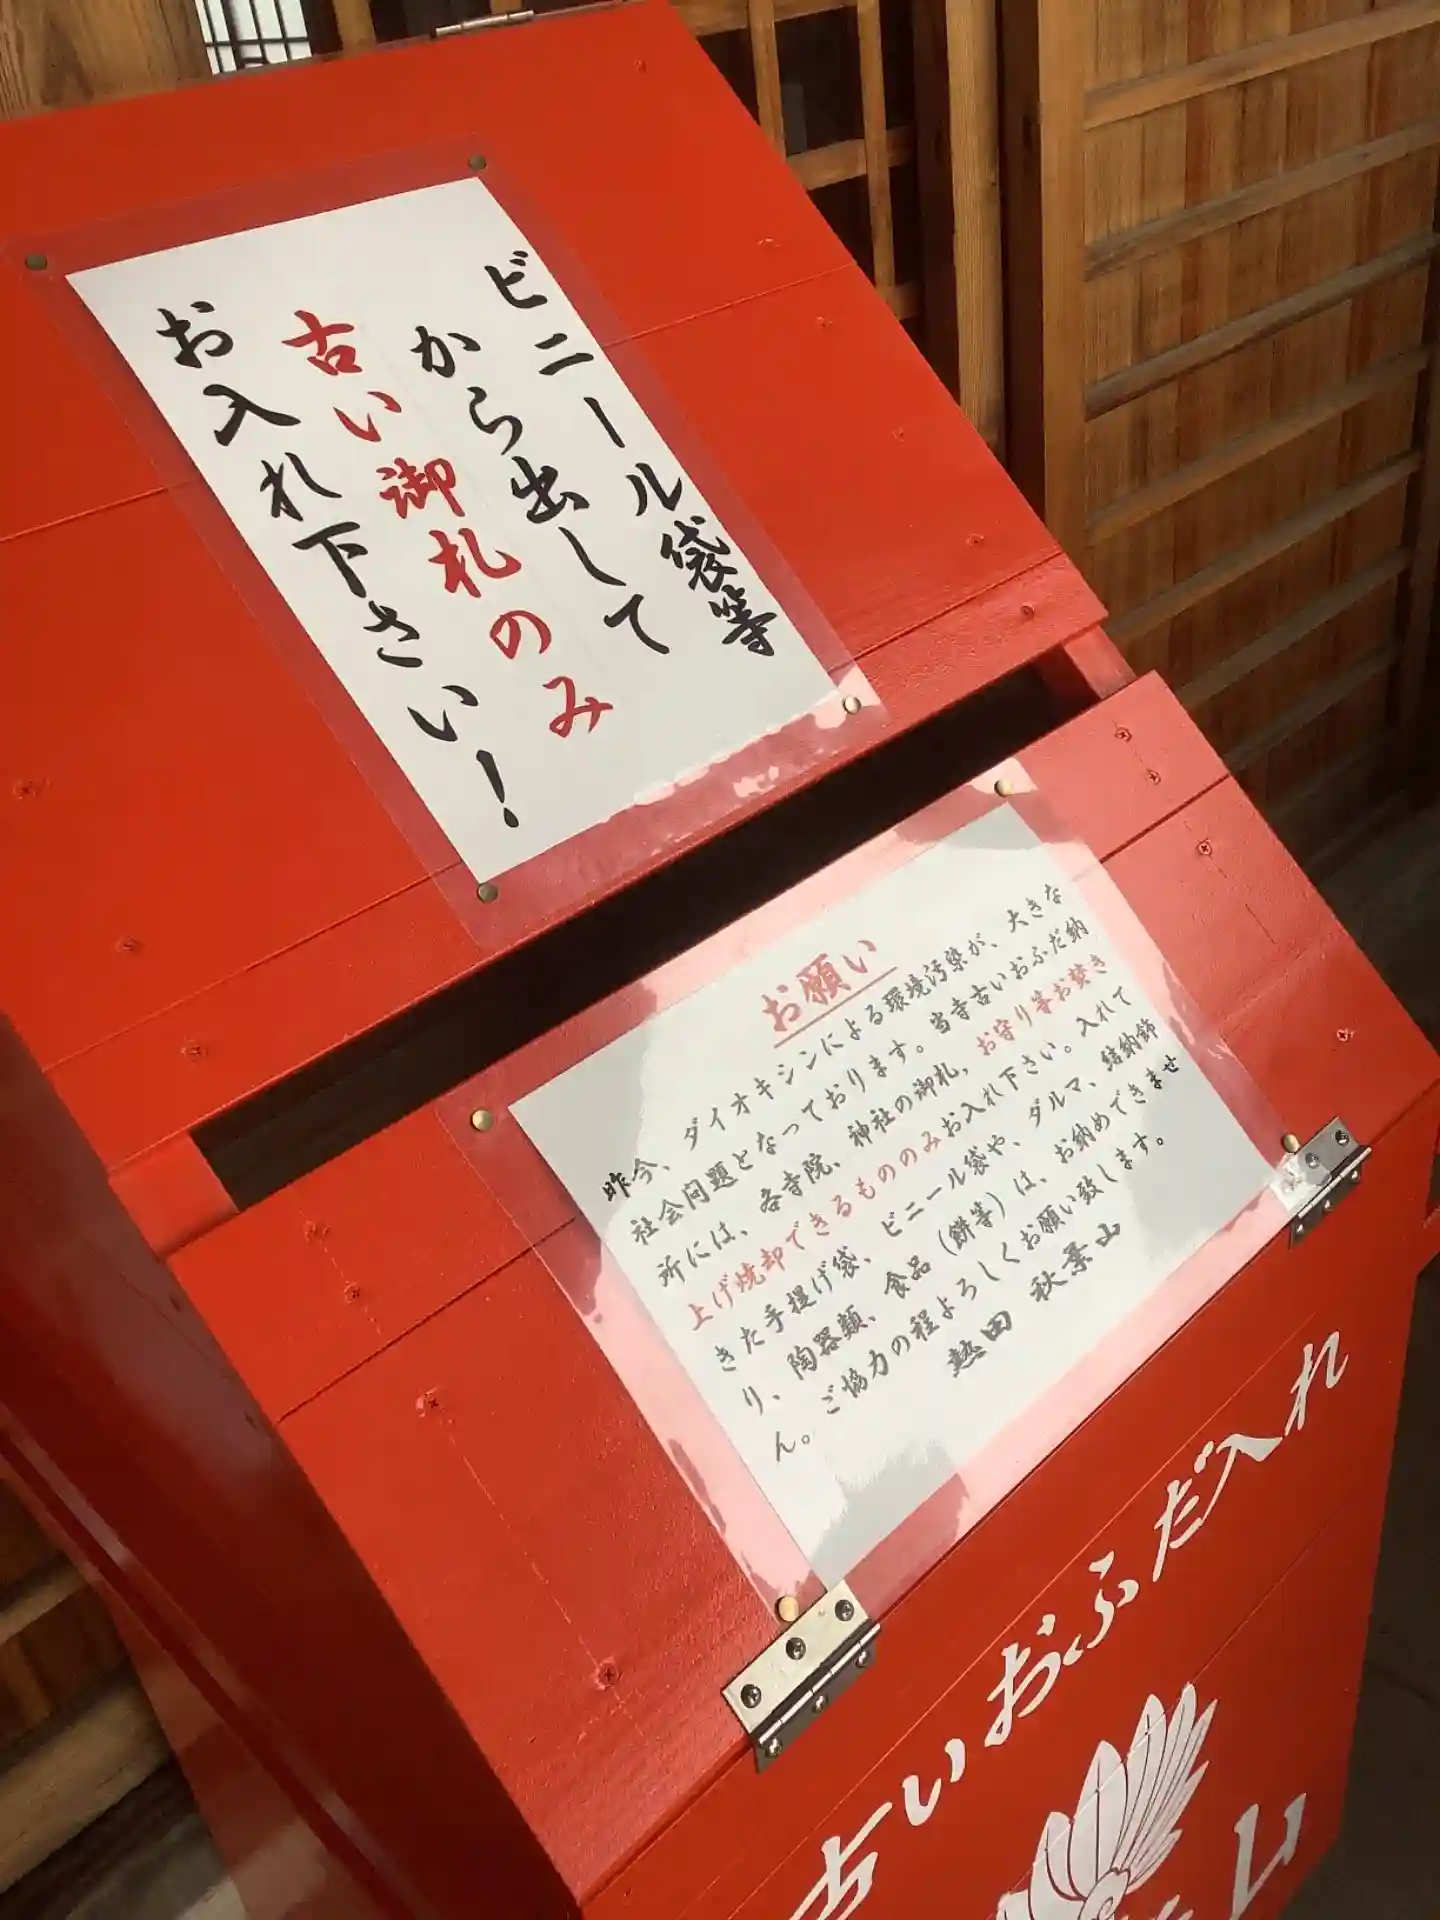 ビニール袋等
から出して
古い御札のみ
お入れ下さい!
お願い
昨今、ダイオキシンによる環境汚染が、大きな
社会問題となっております。当寺古いおふだ納
所には、各寺院、神社の御札，お守り等お焚き
上げ焼却できるもののみお入れ下さい。入れて
きた手提げ袋、ビニール袋や、ダルマ、結納飾
り、陶器類、食品（餅等）は、お納めできませ
ん。ご協力の程よろしくお願い致します。
熱田 秋葉山
古いおふだ入れ
山